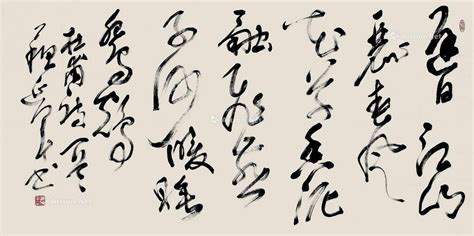 遲日江山
麗春風
花草香泥
融飛燕
子沙暖睡
鴛鴦
杜甫詩
書